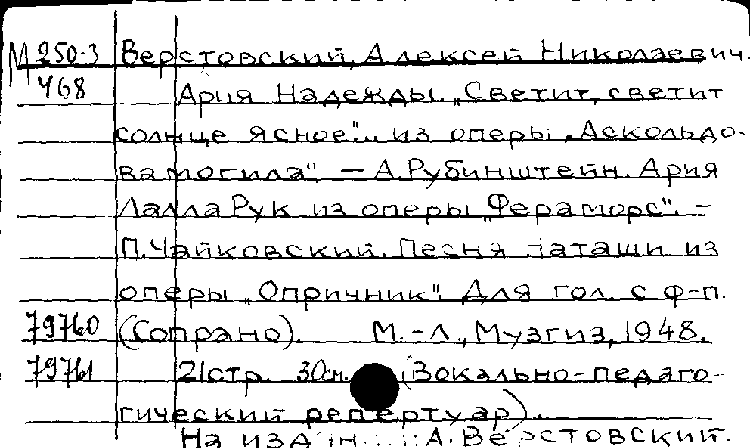 М 250-3 Верстовский, Алексей Николаевич.
768 Ария Надежды „Светит, светит
солнце ясное"... из оперы „Аскольдо-
ва могила". — А. Рубинштейн. Ария
Лалла Рук из оперы „Фераморс". –
П. Чайковский. Песня Наташи из
оперы „Опричник". Для гол. с ф-п.
79760 (Сопрано). М.-Л., Музгиз, 1948.
79761 21стр. 30см. (Вокально-педаго-
гический репертуар).
На изд А. Верстовский.